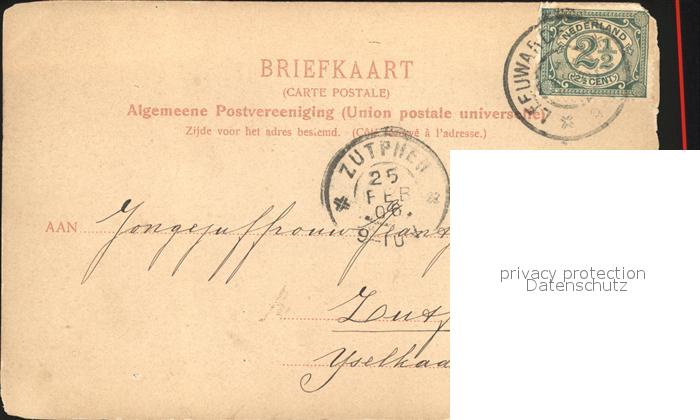 BRIEFKAART
(CARTE POSTALE)
Algemeene Postvereeniging (Union postale universelle)
Zijde voor het adres bestemd. (Côté réservé à l'adresse.)
NEDERLAND
2½
2½ CENT
LEEUWAR
ZUTPHEN
25
FEB
06
9-10
AAN Jongejuffrouw
Zutp
Yselkaa
privacy protection
Datenschutz